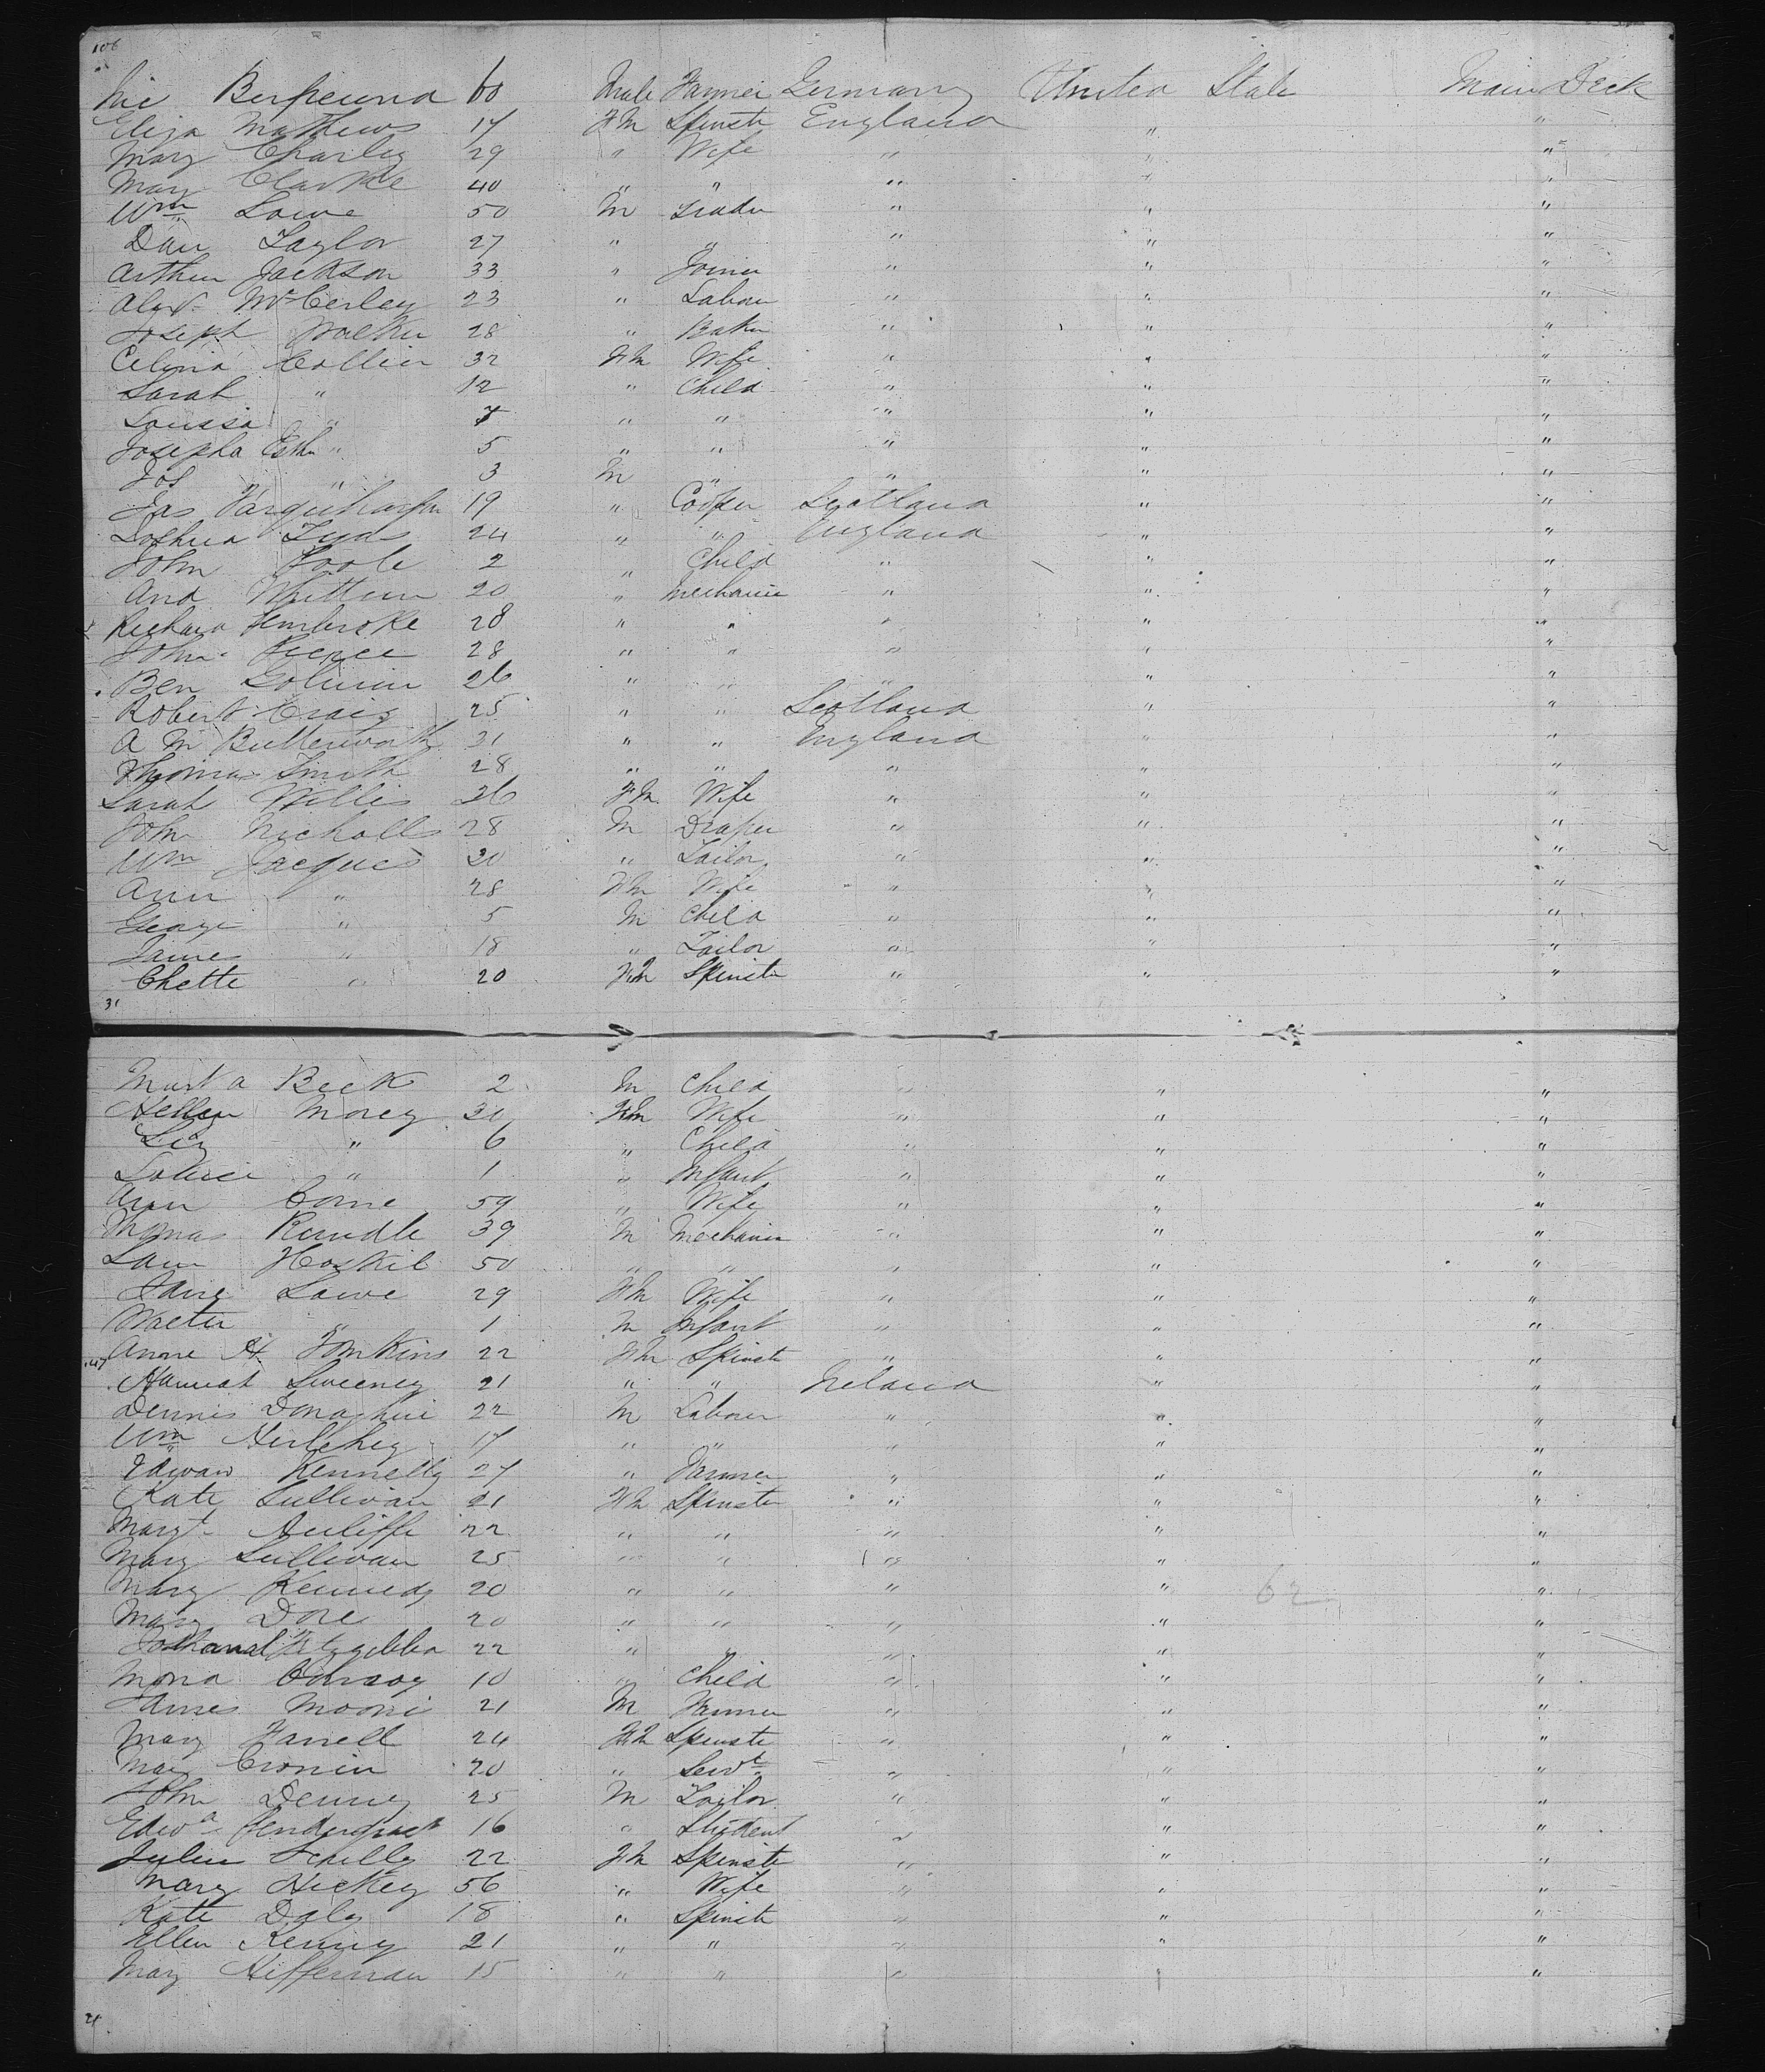 106
Male Farmer Germany United State Main Deck
Eliza Mathews 17 FM Spinste England " "
Mary Charley 29 " Wife " " "
Mary Clarke 40 " " " " "
Wm Lowe 50 M Trader " " "
Dan Taylor 27 " " " " "
Arthur Jackson 33 " Joiner " " "
Alexr McCerley 23 " Labour " " "
Joseph Walker 28 " Baker " " "
Celina Collier 32 FM Wife " " "
Sarah " 12 " Child " " "
Louisa " 7 " " " " "
Josepha Esth " 5 " " " " "
Jos " 3 M " " " "
Jas Farquharson 19 " Cooper Scotland " "
Joshua 24 " " England " "
John Poole 2 " Child " " "
And Whittum 20 " Mechanic " " "
Richard Pembroke 28 " " " " "
John Pierce 28 " " " " "
Ben 26 " " " " "
Robert Craig 25 " " Scotland " "
A M Butterworth 31 " " England " "
Thomas Smith 28 " " " " "
Sarah Willis 36 FM Wife " " "
John Nicholls 28 M Draper " " "
Wm Jacques 30 " Tailor " " "
Ann " 28 FM Wife " " "
George " 5 M Child " " "
James " 18 " Tailor " " "
Chette " 20 FM Spinste " " "
31
Beck 2 M Child " " "
Hellen Morey 30 FM Wife " " "
Liz " 6 " Child " " "
Louise " 1 " Infant " " "
Ann Corne 59 " Wife " " "
Thomas Rundle 39 M Mechanic " " "
Sam Hoskil 50 " " " " "
Jane Lowe 29 FM Wife " " "
Walter " 1 M Infant " " "
Anne H. Tomkins 22 FM Spinste " " "
Hannah Sweeney 21 " " Ireland " "
Dennis Donaghue 22 M Labour " " "
Wm Herlehey 17 " " " " "
Edward Kennelly 27 " Farmer " " "
Kate Sullivan 21 FM Spinste " " "
Margt Auliffe 22 " " " " "
Mary Sullivan 25 " " " " "
Mary Kennedy 20 " " " " 62 "
Mary Dore 20 " " " " "
Fitzgibbon 22 " " " " "
10 " Child " " "
James Moore 21 M Farmer " " "
Mary Farrell 24 FM Spinste " " "
Mary Cronin 20 " Servt " " "
John Denny 25 M Tailor " " "
Edwd Pendergrast 16 " Student " " "
Julia Scully 22 FM Spinste " " "
Mary Hickey 56 " Wife " " "
Kate Daly 18 " Spinste " " "
Ellen Kenny 21 " " " " "
Mary Heffernan 15 " " " " "
21